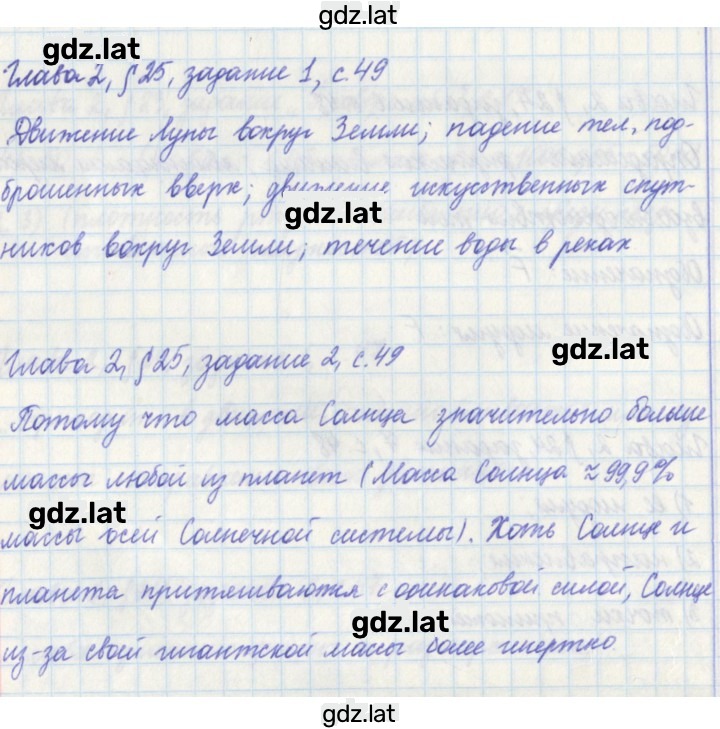 gdz.lat
gdz.lat
Глава 2, § 25, задание 1, с.49
Движение Луны вокруг Земли; падение тел, под-
брошенных вверх; движение искусственных спут-
gdz.lat
ников вокруг Земли; течение воды в реках
gdz.lat
Глава 2, § 25, задание 2, с.49
Потому что масса Солнца значительно больше
массы любой из планет (Масса Солнца ≈ 99,9%
gdz.lat
массы всей Солнечной системы). Хоть Солнце и
планета притягиваются с одинаковой силой, Солнце
gdz.lat
из-за своей гигантской массы более инертно
gdz.lat